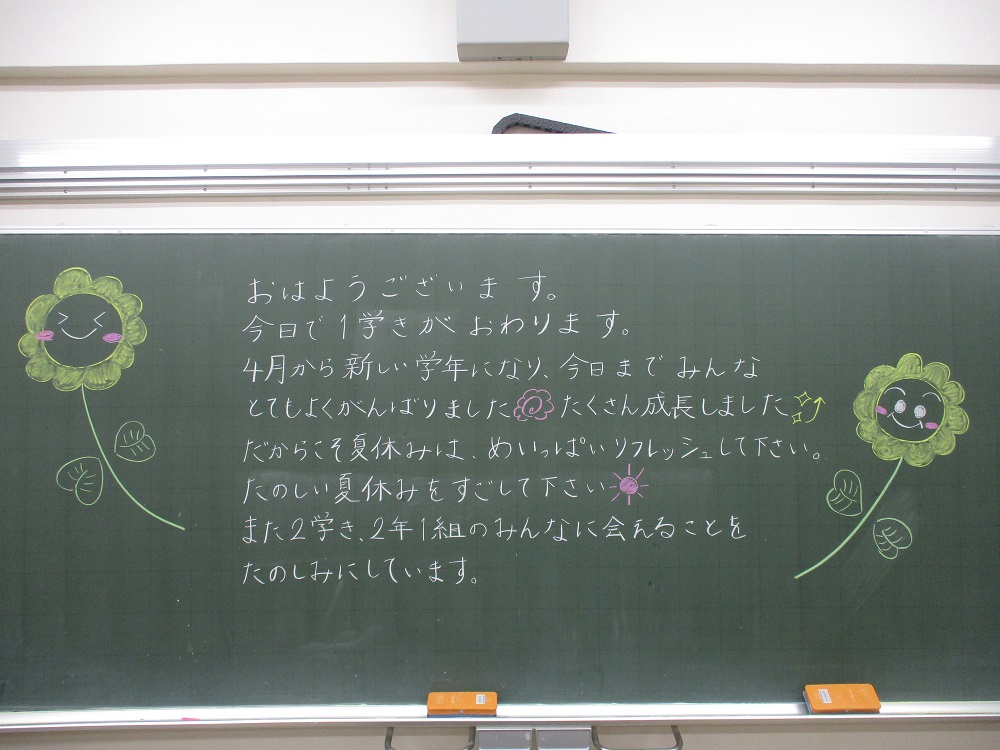 おはようございます。
今日で1学きがおわります。
4月から新しい学年になり、今日までみんな
とてもよくがんばりました たくさん成長しました
だからこそ夏休みは、めいっぱいリフレッシュして下さい。
たのしい夏休みをすごして下さい
また2学き、2年1組のみんなに会えることを
たのしみにしています。